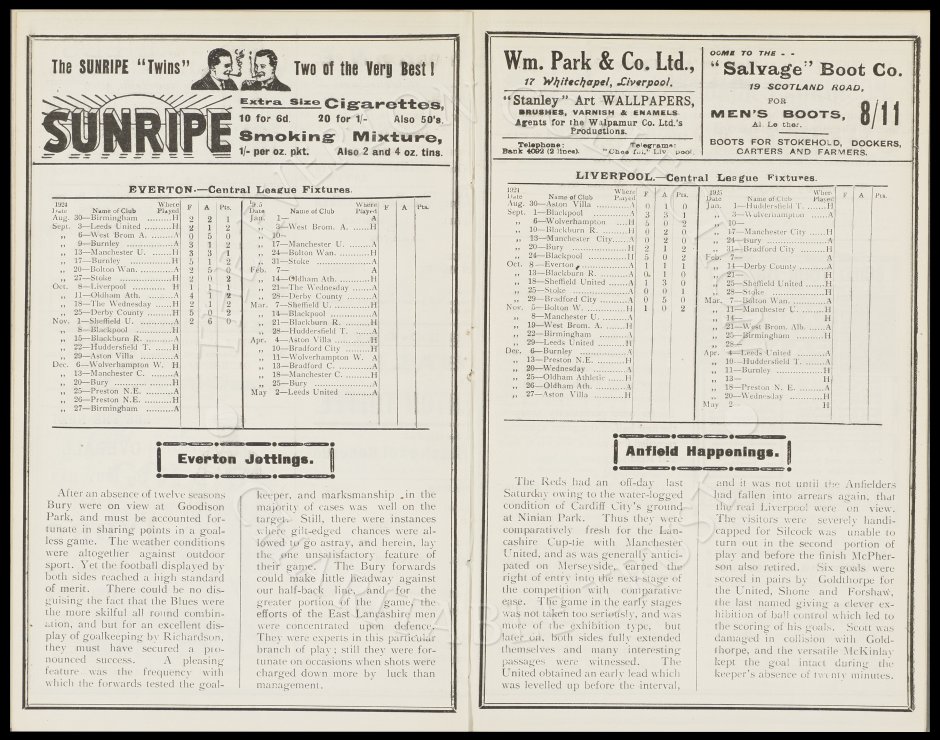 The SUNRIPE "Twins"
Two of the Very Best!
SUNRIPE
Extra Size Cigarettes,
10 for 6d. 20 for 1/- Also 50's.
Smoking Mixture,
1/- per oz. pkt. Also 2 and 4 oz. tins.
EVERTON.—Central League Fixtures.
1924
Date Name of Club Where Played F A Pts.
Aug. 30—Birmingham H 2 2 1
Sept. 3—Leeds United H 2 1 2
„ 6—West Brom A. A 0 5 0
„ 9—Burnley A 3 1 2
„ 13—Manchester U. H 3 3 1
„ 17—Burnley H 5 1 2
„ 20—Bolton Wan. A 2 5 0
„ 27—Stoke H 2 0 2
Oct. 8—Liverpool H 1 1 1
„ 11—Oldham Ath. A 4 1 2
„ 18—The Wednesday H 2 1 2
„ 25—Derby County H 5 2
Nov. 1—Sheffield U. A 2 6 0
„ 8—Blackpool H
„ 15—Blackburn R. A
„ 22—Huddersfield T. H
„ 29—Aston Villa A
Dec. 6—Wolverhampton W. H
„ 13—Manchester C. A
„ 20—Bury H
„ 25—Preston N.E. A
„ 26—Preston N.E. H
„ 27—Birmingham A
1925
Date Name of Club Where Played F A Pts.
Jan. 1— A
„ 3—West Brom. A. H
„ 10—
„ 17—Manchester U. A
„ 24—Bolton Wan. H
„ 31—Stoke A
Feb. 7— A
„ 14—Oldham Ath. H
„ 21—The Wednesday A
„ 28—Derby County A
Mar. 7—Sheffield U. H
„ 14—Blackpool A
„ 21—Blackburn R. H
„ 28—Huddersfield T. A
Apr. 4—Aston Villa H
„ 10—Bradford City H
„ 11—Wolverhampton W. A
„ 13—Bradford C. A
„ 18—Manchester C. H
„ 25—Bury A
May 2—Leeds United A
Everton Jottings.
After an absence of twelve seasons
Bury were on view at Goodison
Park, and must be accounted for-
tunate in sharing points in a goal-
less game. The weather conditions
were altogether against outdoor
sport. Yet the football displayed by
both sides reached a high standard
of merit. There could be no dis-
guising the fact that the Blues were
the more skilful all round combin-
ation, and but for an excellent dis-
play of goalkeeping by Richardson,
they must have secured a pro-
nounced success. A pleasing
feature was the frequency with
which the forwards tested the goal-
keeper, and marksmanship in the
majority of cases was well on the
target. Still, there were instances
where gilt-edged chances were al-
lowed to go astray, and herein, lay
the one unsatisfactory feature of
their game. The Bury forwards
could make little headway against
our half-back line, and for the
greater portion of the game the
efforts of the East Lancashire men
were concentrated upon defence.
They were experts in this particular
branch of play; still they were for-
tunate on occasions when shots were
charged down more by luck than
management.
Wm. Park & Co. Ltd.,
17 Whitechapel, Liverpool.
"Stanley" Art WALLPAPERS,
BRUSHES, VARNISH & ENAMELS
Agents for the Walpamur Co. Ltd.'s
Productions.
Telephone: Telegrams:
Bank 4092 (2 lines). "Cheerful," Liverpool
COME TO THE - -
"Salvage" Boot Co.
19 SCOTLAND ROAD,
FOR
MEN'S BOOTS, 8/11
All Leather.
BOOTS FOR STOKEHOLD, DOCKERS,
CARTERS AND FARMERS.
LIVERPOOL.—Central League Fixtures.
1924
Date Name of Club Where Played F A Pts.
Aug. 30—Aston Villa A 0 1 0
Sept. 1—Blackpool A 3 3 1
„ 6—Wolverhampton H 5 0 2
„ 10—Blackburn R. H 0 2 0
„ 13—Manchester City A 0 2 0
„ 20—Bury H 2 1 2
„ 24—Blackpool H 5 0 2
Oct. 8—Everton A 1 1 1
„ 13—Blackburn R. A 0 1 0
„ 18—Sheffield United A 1 3 0
„ 25—Stoke H 0 0 1
„ 29—Bradford City A 0 5 0
Nov. 5—Bolton W. H 1 0 2
„ 8—Manchester U. A
„ 19—West Brom. A. H
„ 22—Birmingham A
„ 29—Leeds United H
Dec. 6—Burnley A
„ 13—Preston N.E. H
„ 20—Wednesday A
„ 25—Oldham Athletic H
„ 26—Oldham Ath. A
„ 27—Aston Villa H
1925
Date Name of Club Where Played F A Pts.
Jan. 1—Huddersfield T. H
„ 3—Wolverhampton A
„ 10—
„ 17—Manchester City H
„ 24—Bury A
„ 31—Bradford City H
Feb. 7—
„ 14—Derby County A
„ 21— H
„ 25—Sheffield United H
„ 28—Stoke H
Mar. 7—Bolton Wan. A
„ 11—Manchester U. H
„ 14— H
„ 21—West Brom. Alb. A
„ 25—Birmingham H
„ 28—
Apr. 4—Leeds United A
„ 10—Huddersfield T. A
„ 11—Burnley H
„ 13— H
„ 18—Preston N. E. A
„ 20—Wednesday H
May 2— H
Anfield Happenings.
The Reds had an off-day last
Saturday owing to the water-logged
condition of Cardiff City's ground
at Ninian Park. Thus they were
comparatively fresh for the Lan-
cashire Cup-tie with Manchester
United, and as was generally antici-
pated on Merseyside, earned the
right of entry into the next stage of
the competition with comparative
ease. The game in the early stages
was not taken too seriously, and was
more of the exhibition type, but
later on, both sides fully extended
themselves and many interesting
passages were witnessed. The
United obtained an early lead which
was levelled up before the interval,
and it was not until the Anfielders
had fallen into arrears again, that
the real Liverpool were on view.
The visitors were severely handi-
capped for Silcock was unable to
turn out in the second portion of
play and before the finish McPher-
son also retired. Six goals were
scored in pairs by Goldthorpe for
the United, Shone and Forshaw,
the last named giving a clever ex-
hibition of ball control which led to
the scoring of his goals. Scott was
damaged in collision with Gold-
thorpe, and the versatile McKinlay
kept the goal intact during the
keeper's absence of twenty minutes.